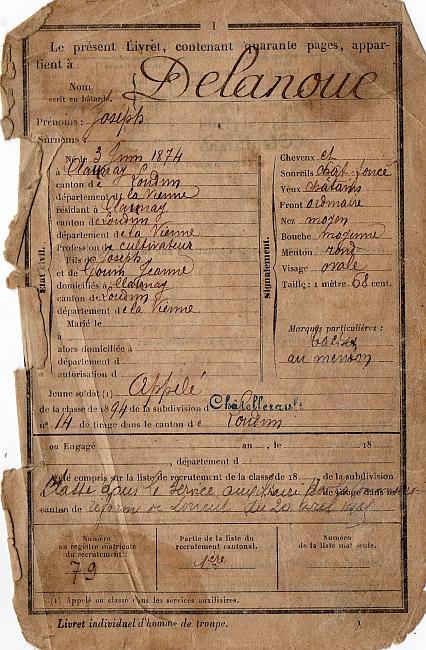 1
Le présent Livret, contenant quarante pages, appar-
tient à
Nom
écrit en bâtarde.
Delanoue
Prénoms : Joseph
Surnoms :
État civil.
Né le 3 Juin 1874
à Claunay
canton de Loudun
département de la Vienne
résidant à Claunay
canton de Loudun
département de la Vienne
Profession de cultivateur
Fils de Joseph
et de Jeanne
domiciliés à Claunay
canton de Loudun
département de la Vienne
Marié le
à
alors domiciliée à
département d
autorisation d
Signalement.
Cheveux et
Sourcils chât-foncé
Yeux châtains
Front ordinaire
Nez moyen
Bouche moyenne
Menton rond
Visage ovale
Taille : 1 mètre 68 cent.
Marques particulières :
au menton
Jeune soldat (1) Appelé
de la classe de 1894 de la subdivision d Châtellerault
n° 14 de tirage dans le canton de Loudun
ou Engagé an , le 18
, département d
a été compris sur la liste de recrutement de la classe de 18 de la subdivision
Classé dans le service auxiliaire de tirage dans le
canton de réforme de Lorient du 20 avril
Numéro
au registre matricule
du recrutement :
79
Partie de la liste
du recrutement cantonal.
1ère
Numéro
de la liste matricule.
(1) Appelé ou classé dans les services auxiliaires.
Livret individuel d'homme de troupe.
1